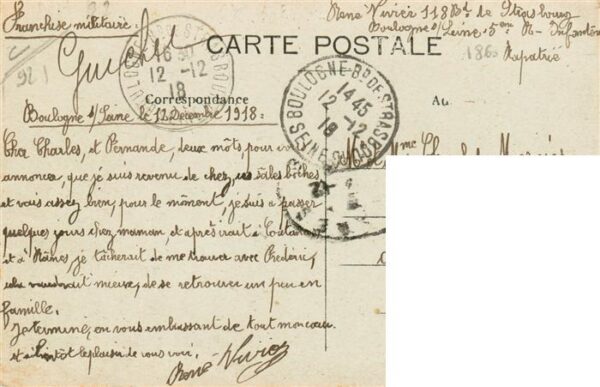 Franchise militaire.
Rene Vivier 118 Bd de Strasbourg
Boulogne s/ Seine 5em R- Infanterie
Rapatrié
92
1860
CARTE POSTALE
BOULOGNE-BD DE STRASBOURG
16
12 -12
18
BOULOGNE-BD DE STRASBOURG
14 45
12 -12
18
SEINE
Correspondance
Au
Boulogne s/ Seine le 12 Décembre 1918.
Cher Charles, et Fernande, deux môts pour vous
annoncer, que je suis revenu de chez les sâles bôches
et vais assez bien, pour le môment, je suis a passer
quelques jours chez maman, et après irait à
et a je tacherait de me trouver avec Frédéric,
mieux, de se retrouver un peu en
famille.
Je termine, en vous embrassant de tout mon cœur
et a bientôt le plaisir de vous voir.
René Vivier
Mme Charles